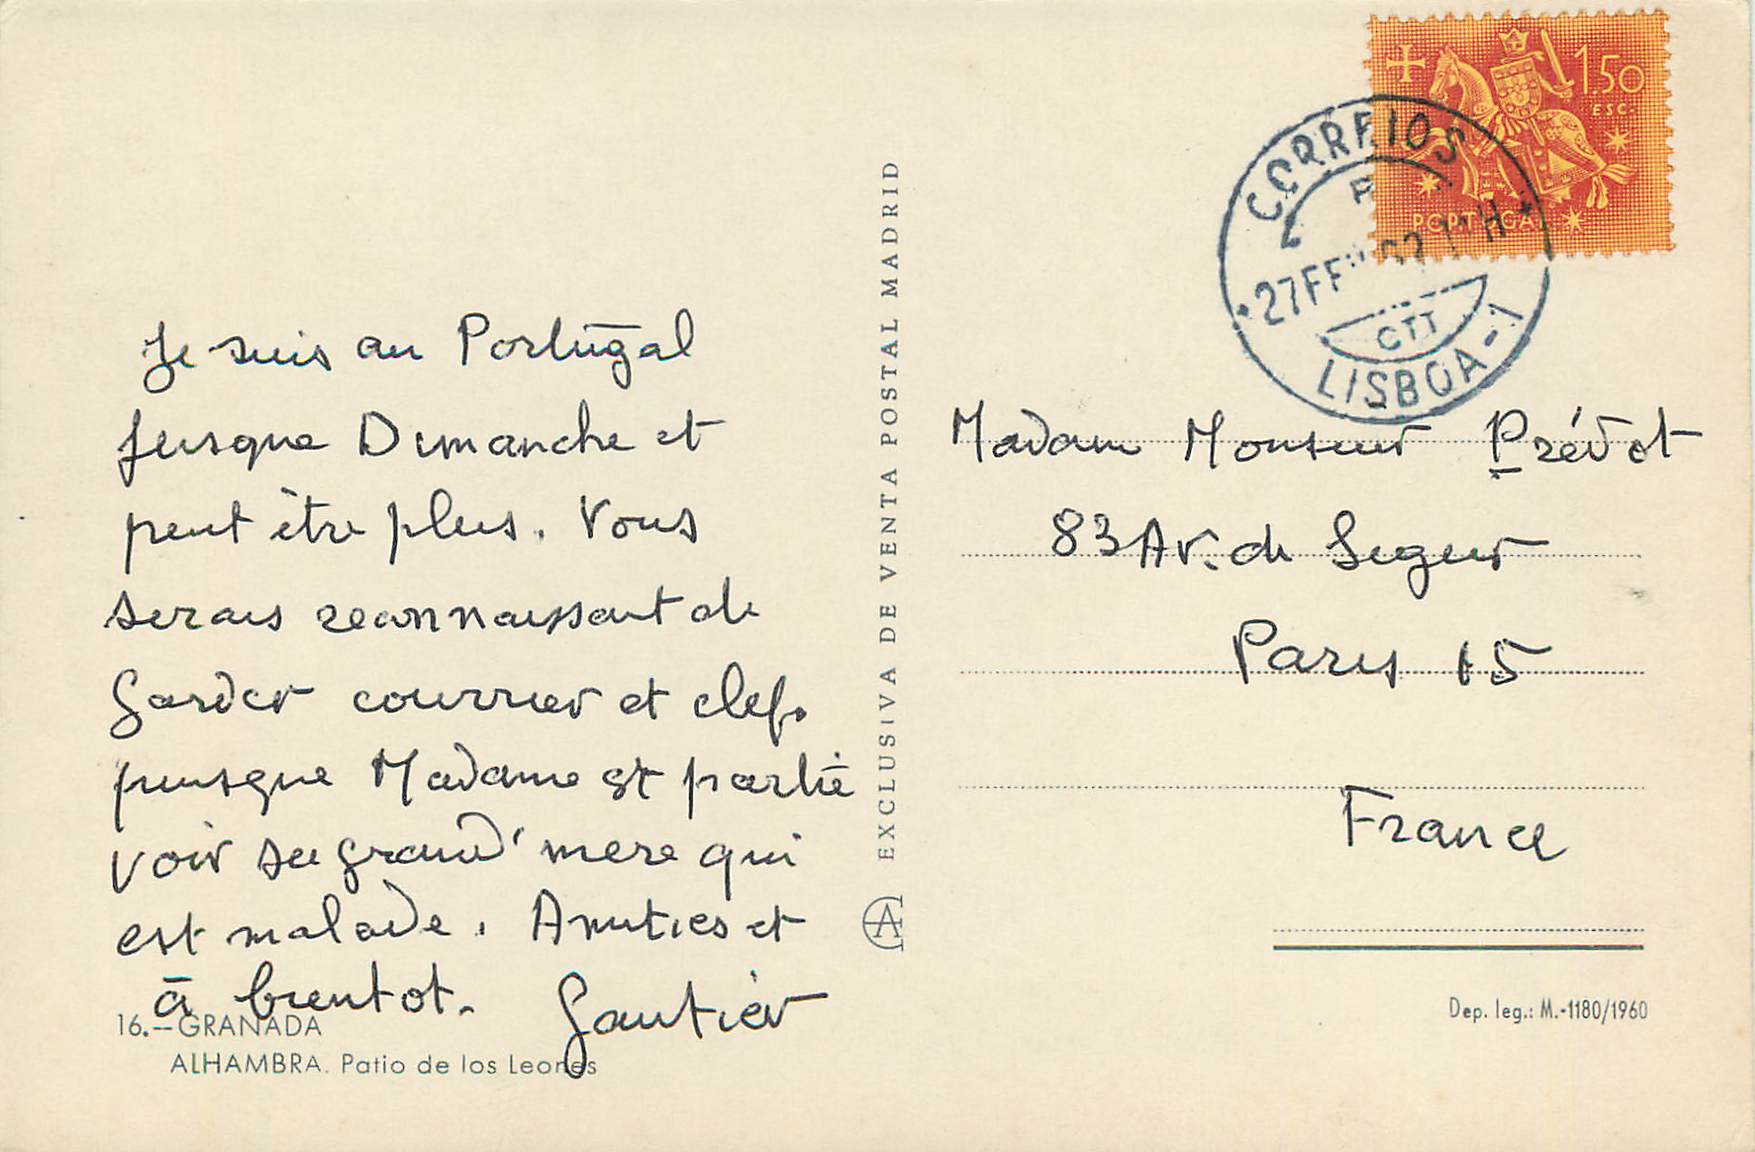 Je suis au Portugal
jusque Dimanche et
peut être plus. Vous
serais reconnaissant de
garder courrier et clef.
puisque Madame est partie
voir sa grand'mere qui
est malade. Amities et
à bientot. Gautier
16.—GRANADA
ALHAMBRA. Patio de los Leones
EXCLUSIVA DE VENTA POSTAL MADRID
CORREIOS
27 FEV 62 11 H
CTT
LISBOA-1
1.50
ESC.
PORTUGAL
Madam Monsieur Prévot
83 Av. de Segur
Paris 15
France
Dep. leg.: M.-1180/1960